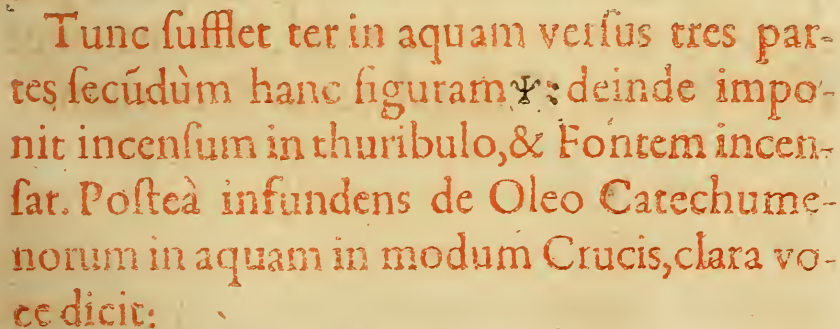 Tunc ſufflet ter in aquam verſus tres par-
tes ſecūdùm hanc figuram Ψ: deinde impo-
nit incenſum in thuribulo,& Fontem incen-
ſat. Poſteà infundens de Oleo Catechume-
norum in aquam in modum Crucis,clara vo-
ce dicit: